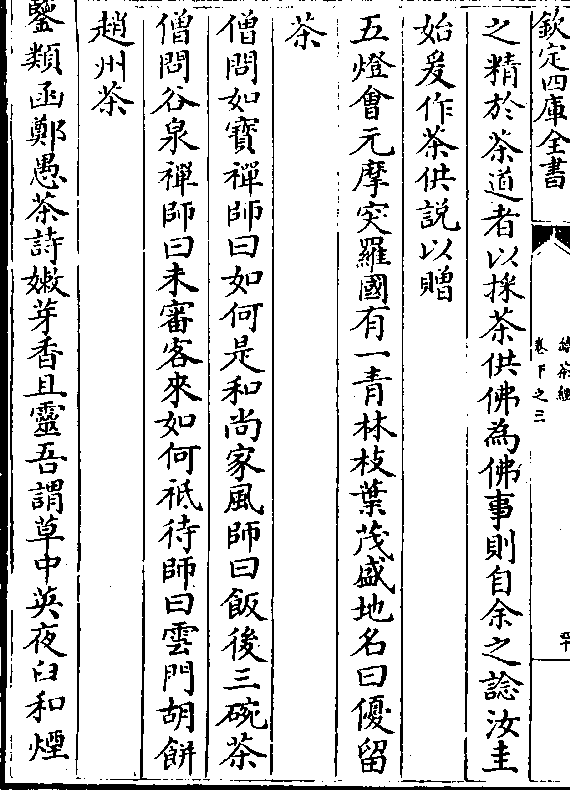 欽定四庫全書
續茶經
卷下之三
之精於茶道者以採茶供佛為佛事則自余之諗汝圭
始爰作茶供説以贈
五燈會元摩突羅國有一青林枝葉茂盛地名曰優留
茶
僧問如寳禪師曰如何是和尚家風師曰飯後三碗茶
僧問谷泉禪師曰未審客來如何祗待師曰雲門胡餅
趙州茶
鑒類函鄭愚茶詩嫩芽香且靈吾謂草中英夜臼和煙